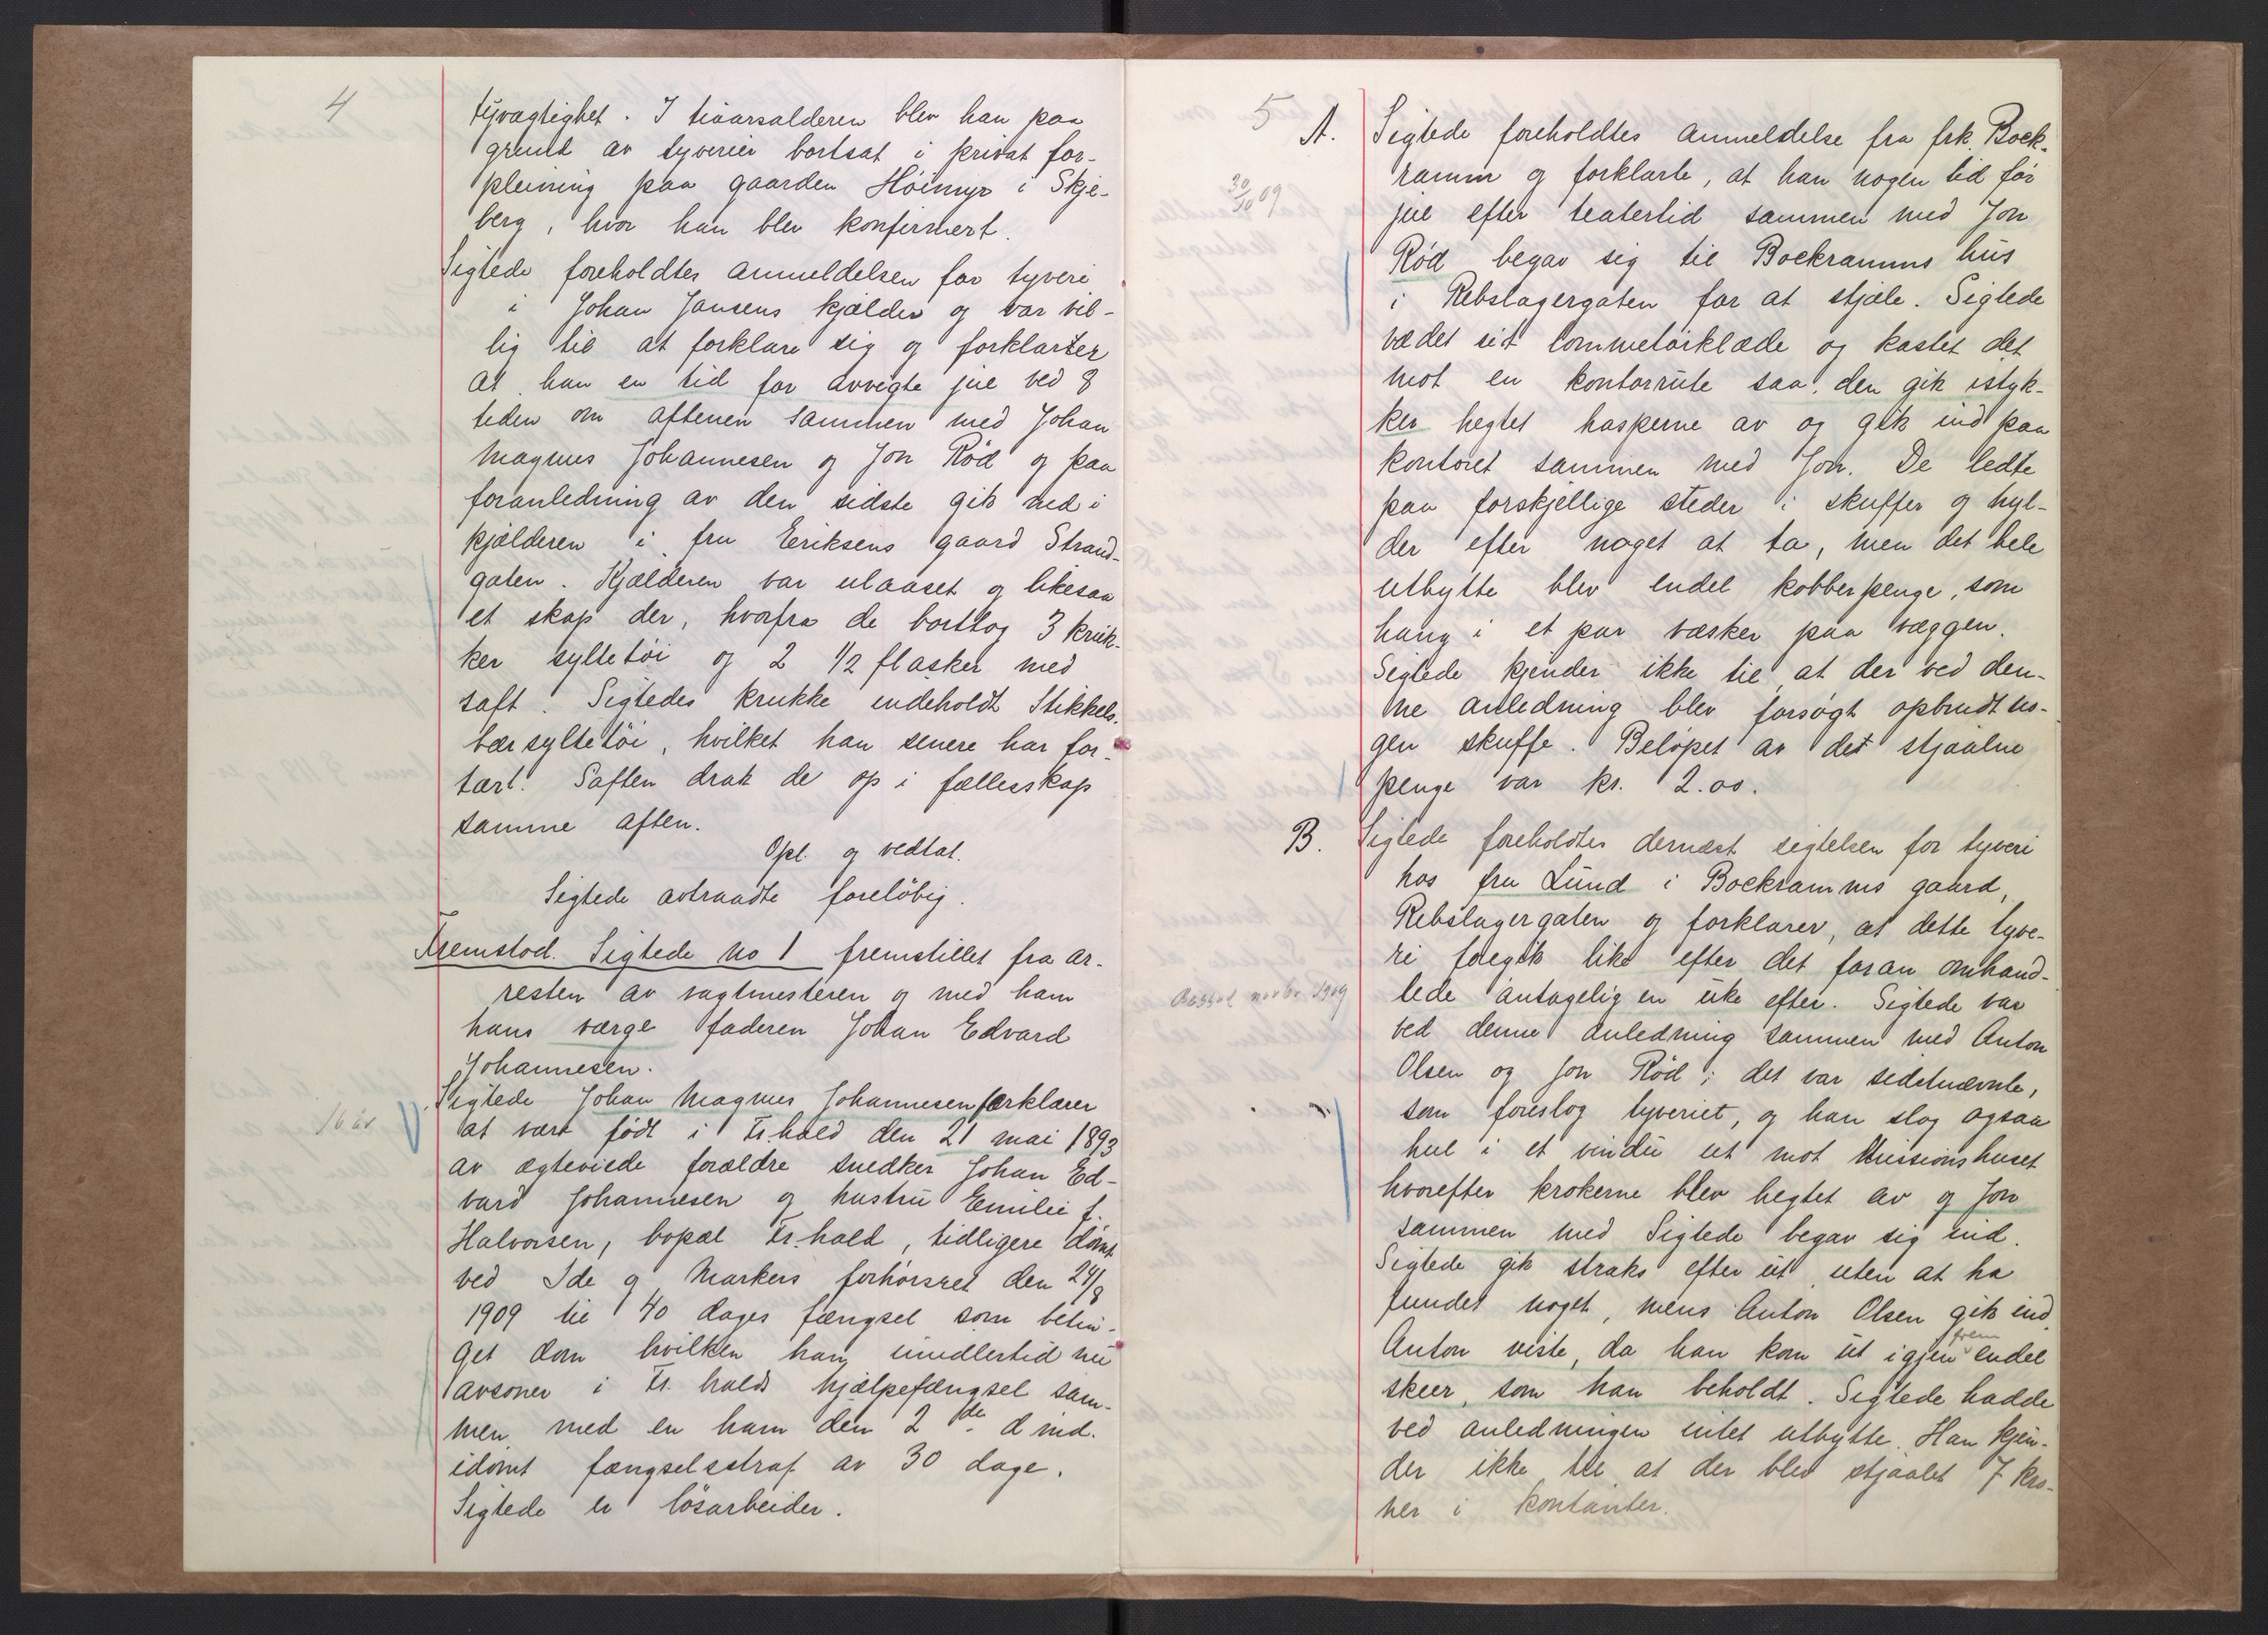 4
tyvagtighet. I tiaarsalderen blev han paa
grund av tyverier bortsat i privat for-
pleining paa gaarden Höimyr i Skje-
berg, hvor han blev konfirmert.
Sigtede foreholdtes anmeldelsen for tyveri
i Johan Jansens kjælder og var vil-
lig til at forklare sig og forklarter
at han en tid før avvigte jul ved 8
tiden om aftenen sammen med Johan
Magnus Johannesen og Jon Rød og paa
foranledning av den sidste gik ned i
kjælderen i fru Eriksens gaard Strand-
gaten. Kjælderen var ulaaset og likesaa
et skap der, hvorfra de borttog 3 kruk-
ker syltetöi og 2 1/2 flasker med
saft. Sigtedes krukke indeholdt Stikkels-
bærsyltetöi, hvilket han senere har for-
tært. Saften drak de op i fællesskap
samme aften.
Opl. og vedtat.
Sigtede avtraadte foreløbig.
Fremstod. Sigtede No 1 fremstillet fra ar-
resten av vagtmesteren og med ham
hans værge faderen Johan Edvard
Johannesen.
Sigtede Johan Magnus Johannesen forklarer
16 år
at være født i Fr.hald den 21 mai 1893
av ægteviede forældre snedker Johan Ed-
vard Johannesen og hustru Emilie f.
Halvorsen, bopæl Fr.hald, tidligere dømt
ved Ide og Markers forhørsret den 24/8
1909 til 40 dages fængsel som betin-
get dom hvilken han imidlertid nu
avsoner i Fr. halds hjælpefængsel sam-
men med en ham den 2de d. md.
idømt fængselsstraf av 30 dage.
Sigtede er løsarbeider.
5
A. Sigtede foreholdtes anmeldelse fra frk. Bock-
ramm og forklarte, at han nogen tid før
30/10 09
jul efter teatertid sammen med Jon
Rød begav sig til Bockramms hus
i Rebslagergaten for at stjæle. Sigtede
vædet sit lommetørklæde og kastet det
mot en kontorrute saa den gik istyk-
ker hegtet hasperne av og gik ind paa
kontoret sammen med Jon. De ledte
paa forskjellige steder i skuffer og hyl-
der efter noget at ta, men det hele
utbytte blev endel kobberpenge, som
hang i et par væsker paa væggen.
Sigtede kjender ikke til at der ved den-
ne anledning blev forsøgt opbrudt no-
gen skuffe. Beløpet av det stjaalne
penge var kr. 2.00.
B. Sigtede foreholdtes dernæst sigtelsen for tyveri
hos fru Lund i Bockramms gaard,
Rebslagergaten og forklarer, at dette tyve-
ri foregik like efter det foran omhand-
novbr 1909
lede antagelig en uke efter. Sigtede var
ved denne anledning sammen med Anton
Olsen og Jon Rød; det var sidstnævnte,
som foreslog tyveriet, og han slog ogsaa
hul i et vindu ut mot Missionshuset
hvorefter krokerne blev hegtet av og Jon
sammen med Sigtede begav sig ind.
Sigtede gik straks efter ut uten at ha
fundet noget, mens Anton Olsen gik ind.
Anton viste, da han kom ut igjen frem endel
skeer, som han beholdt. Sigtede hadde
ved anledningen intet utbytte. Han kjen-
der ikke til at der blev stjaalet 7 kro-
ner i kontanter.